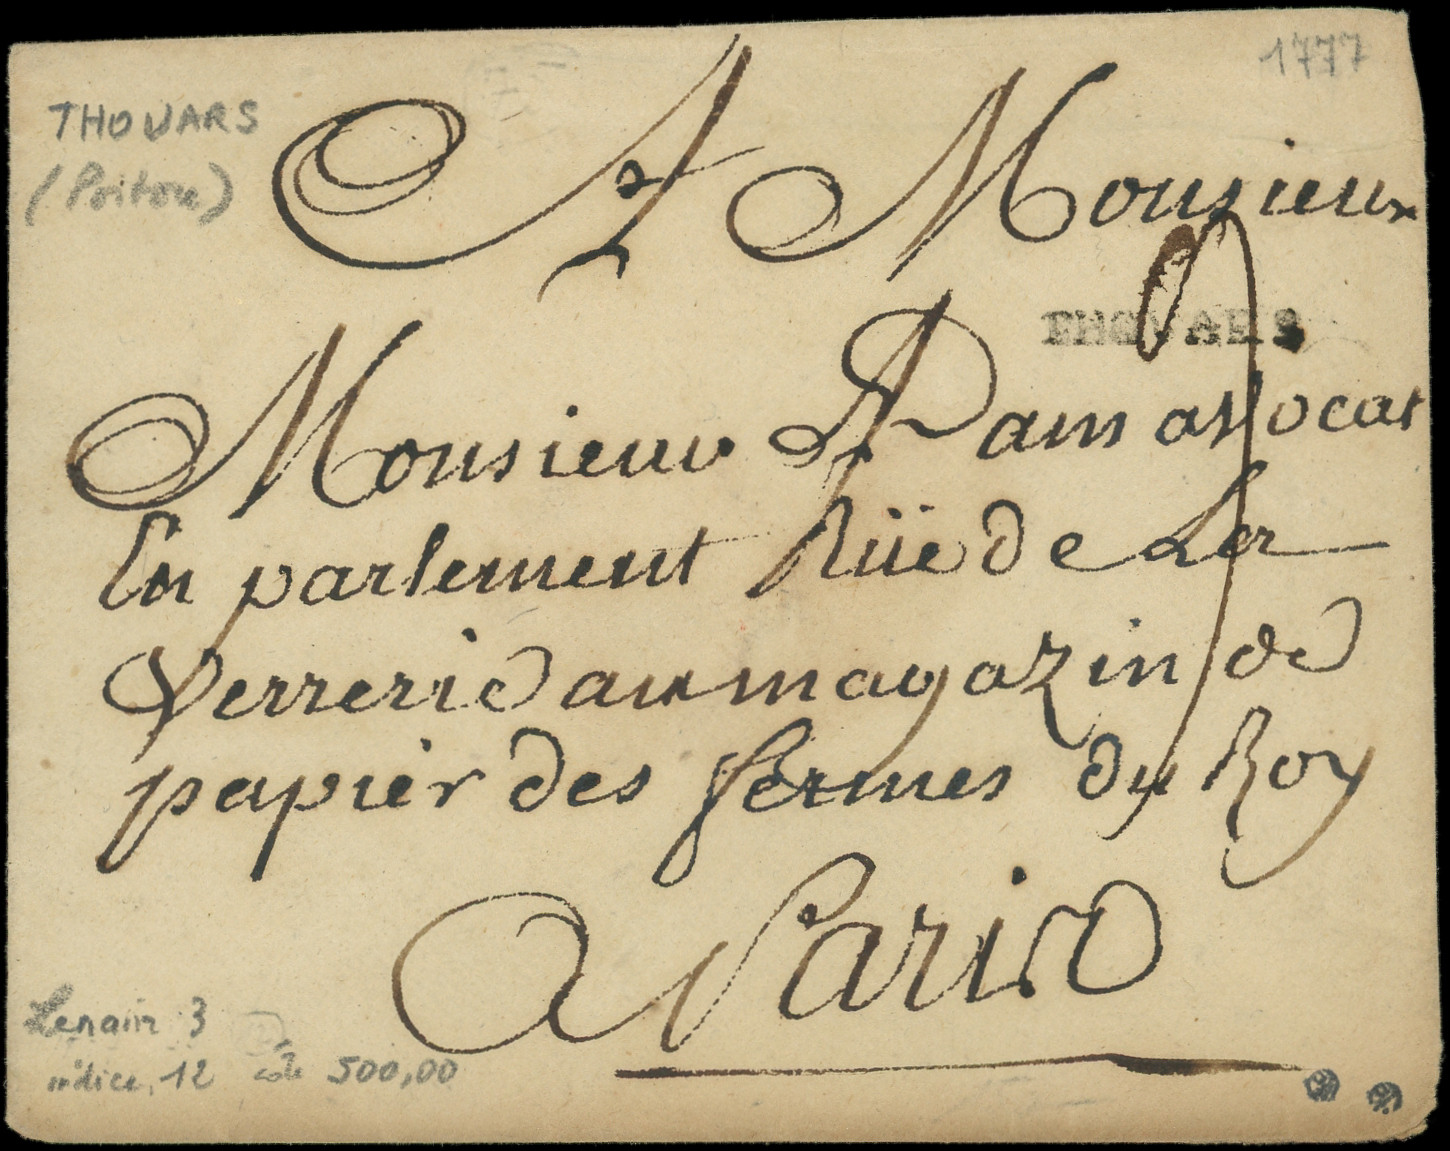 1777
THOUARS
(Poitou)
A Monsieur
THOUARS
Monsieur Dain avocat
En parlement Rüe de La
Verrerie au magazin de
papier des fermes du Roy
A Paris
Lenain 3
indice 12 côte 500,00